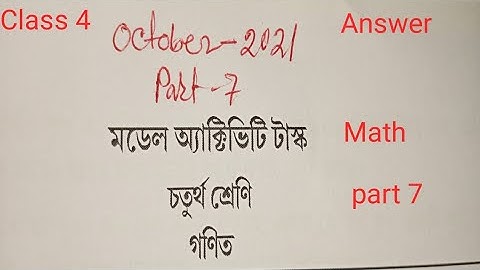 Class 4
October-2021
Answer
Part-7
মডেল অ্যাক্টিভিটি টাস্ক
Math
চতুর্থ শ্রেণি
part 7
গণিত